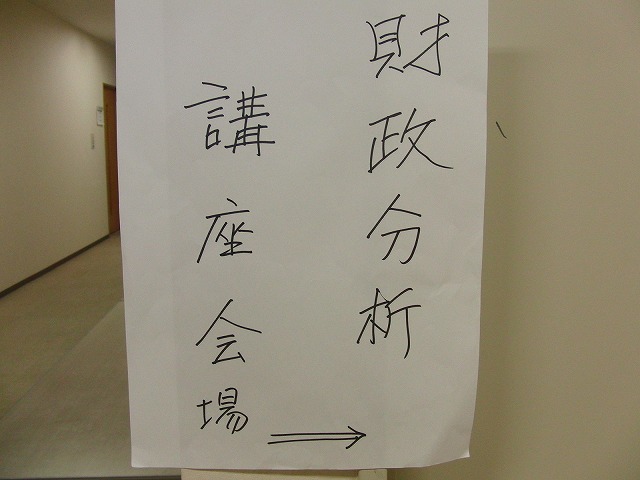 財政分析
講座会場